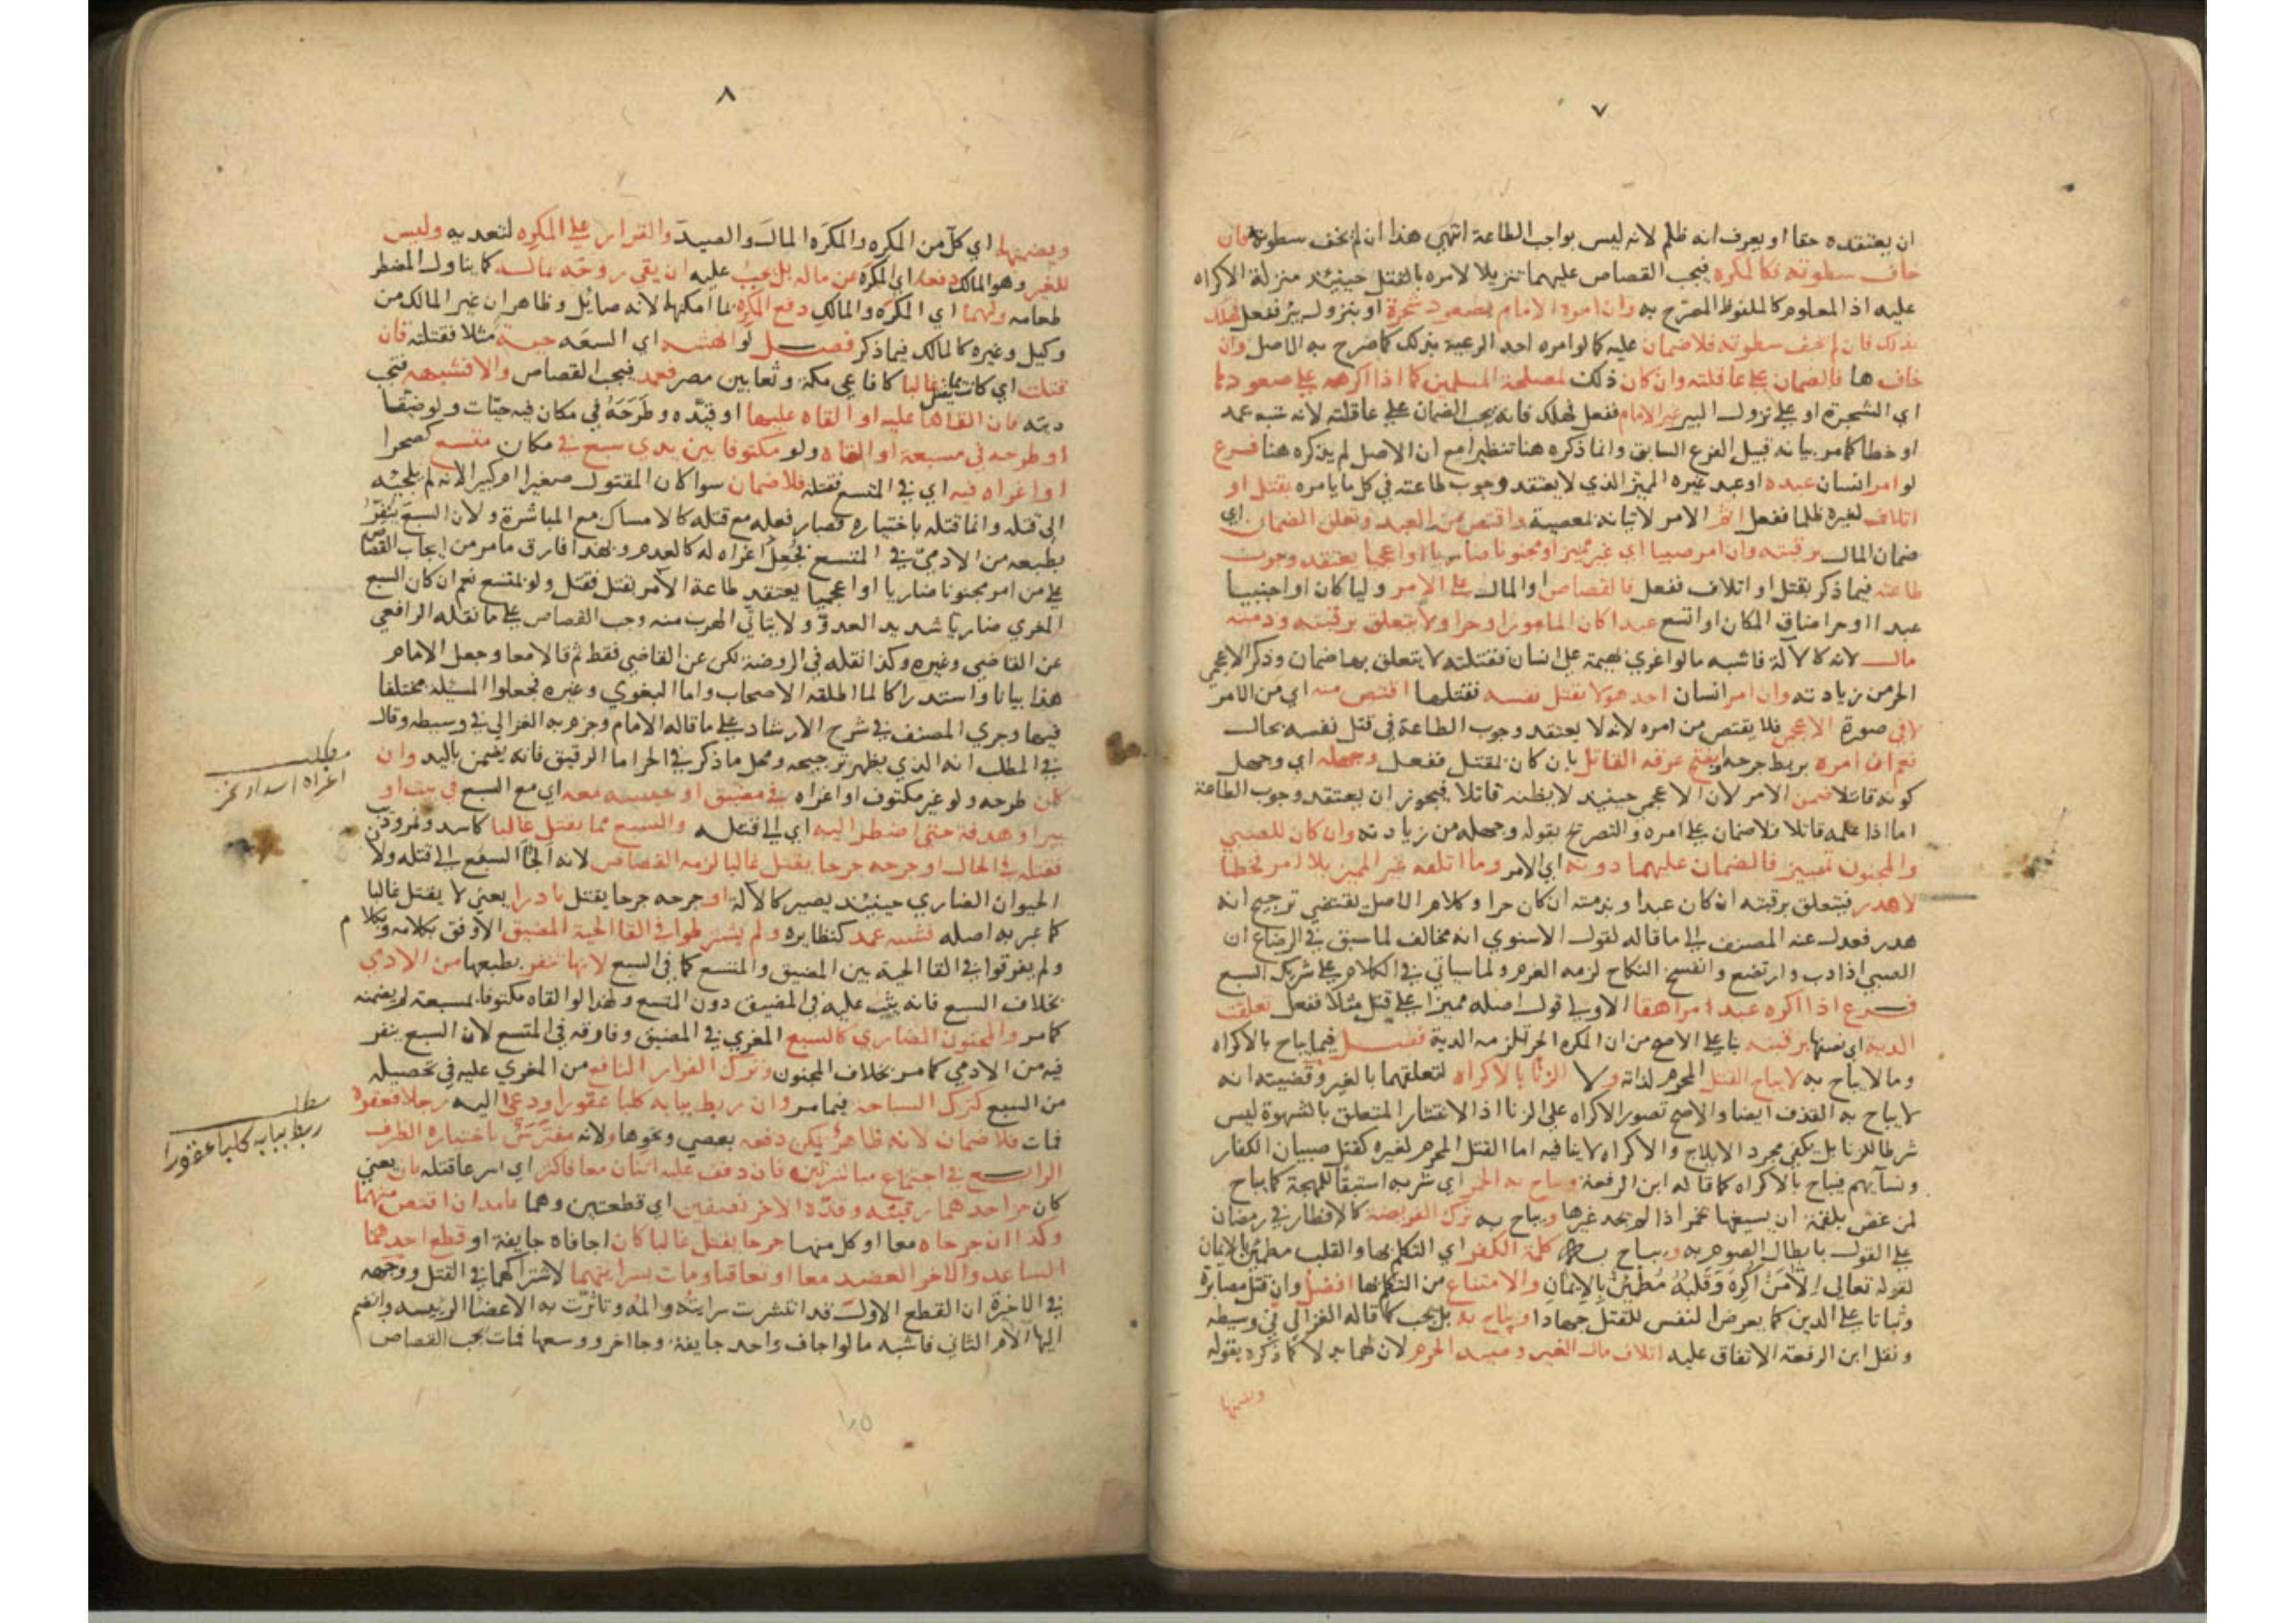 ٧
ان يعتقده حقا او يعرف انه ظلم لانه ليس بواجب الطاعة انتهى هذا ان لم يخف سطوته فان
خاف سطوته فكالمكره فيجب القصاص عليهما تنزيلا لامره بالقتل حينئذ منزلة الاكراه
عليه اذ المعلوم كالملفوظ المصرح به وان امره الامام بصعود شجرة او بنزول بير ففعل فهلك
بذلك فان لم يخف سطوته فلا ضمان عليه كما لو امره احد الرعية بذلك كما صرح به الاصل وان
خافها فالضمان على عاقلته وان كان ذلك لمصلحة المسلمين كما اذا اكرهه على صعودها
اي الشجرة او على نزول البير غير الامام ففعل فهلك فانه يجب الضمان على عاقلته لانه شبه عمد
او خطا كما مر بيانه قبيل الفرع السابق وانما ذكره هنا تنظيرا مع ان الاصل لم يذكره هنا فرع
لو امر انسان عبده او عبد غيره المميز الذي لا يعتقد وجوب طاعته في كل ما يامره بقتل او
اتلاف لغيره ظلما ففعل اثم الامر لاتيانه لمعصية واقتص من العبد وتعلق الضمان اي
ضمان المال برقبته وان امر صبيا اي غير مميز او مجنونا ضاريا او اعجميا يعتقد وجوب
طاعته فيما ذكر بقتل او اتلاف ففعل فالقصاص او المال على الامر وليا كان او اجنبيا
عبدا او حرا ضاق المكان او اتسع عبدا كان المامور او حرا ولا يتعلق برقبته وذمته
مال لانه كالآلة فاشبه ما لو اغرى بهيمة على انسان فقتلته لا يتعلق بها ضمان وذكر الاعجمي
الحر من زيادته وان امر انسان احد هولا بقتل نفسه فقتلها اقتص منه اي من الامر
لا في صورة الاعجمي فلا يقتص من امره لانه لا يعتقد وجوب الطاعة في قتل نفسه بحال
نعم ان امره بربط جرحه او بفتح عرقه القاتل بان كان بمقتل ففعل وجهله اي وجهل
كونه قاتلا ضمن الامر لان الاعجمي حينئذ لا يظنه قاتلا فيجوز ان يعتقد وجوب الطاعة
اما اذا علمه قاتلا فلا ضمان على امره والتصريح بقوله وجهله من زيادته وان كان للصبي
والمجنون تمييز فالضمان عليهما دونه اي الامر وما اتلفه غير المميز بلا امر فخطا
لا هدر فيتعلق برقبته ان كان عبدا وبذمته ان كان حرا وكلام الاصل يقتضي ترجيح انه
هدر فعدل عنه المصنف الى ما قاله لقول الاسنوي انه مخالف لما سبق في الرضاع ان
الصبي اذا دب وارتضع وانفسخ النكاح لزمه الغرم ولما سياتي في الكلام على شريك السبع
فرع اذا اكره عبدا مراهقا الاولى قول اصله مميزا على قتل مثلا ففعل تعلقت
الدية اي نصفها برقبته بنا على الاصح من ان المكره الحر تلزمه الدية فصل فيما يباح بالاكراه
وما لا يباح به لا يباح القتل المحرم لذاته ولا الزنا بالاكراه لتعلقهما بالغير وقضيته انه
لا يباح به القذف ايضا والاصح تصور الاكراه على الزنا اذ الانتشار المتعلق بالشهوة ليس
شرطا للزنا بل يكفي مجرد الايلاج والاكراه لا ينافيه اما القتل المحرم لغيره كقتل صبيان الكفار
ونسآيهم فيباح بالاكراه كما قاله ابن الرفعة ويباح به الخمر اي شربه استبقآ للمهجة كما يباح
لمن غص بلقمة ان يسيغها بخمر اذا لم يجد غيرها ويباح به ترك الفريضة كالافطار في رمضان
على القول بابطال الصوم به ويباح به كلمة الكفر اي التكلم بها والقلب مطمئن بالايمان
لقوله تعالى الا من اكره وقلبه مطمئن بالايمان والامتناع من التكلم بها افضل وان قتل مصابرة
وثباتا على الدين كما يعرض النفس للقتل جهادا ويباح به بل يجب كما قاله الغزالي في وسيطه
ونقل ابن الرفعة الاتفاق عليه اتلاف مال الغير وصيد الحرم لان لهما بدلا كما ذكره بقوله
ويضمنها
٨
ويضمنهما اي كل من المكرِه والمكرَه المال والصيد والقرار على المكرِه لتعديه وليس
للغير وهو المالك دفعه اي المكره عن ماله بل يجب عليه ان يقي روحه بماله كما يناول المضطر
طعامه ولهما اي المكره والمالك دفع المكرِه بما امكنهما لانه صايل وظاهر ان غير المالك من
وكيل وغيره كالمالك فيما ذكر فصل لو انهشه اي السعه حية مثلا فقتلته فان
قتلت اي كانت مما يقتل غالبا كافاعي مكة وثعابين مصر فعمد فيجب القصاص والا فشبهه فتجب
ديته فان القاها عليه او القاه عليها او قيده وطرحه في مكان فيه حيات ولو ضيقا
او طرحه في مسبعة او القاه ولو مكتوفا بين يدي سبع في مكان متسع كصحرا
او اغراه فيه اي في المتسع فقتله فلا ضمان سوا كان المقتول صغيرا ام كبيرا لانه لم يلجئه
الى قتله وانما قتله باختياره فصار فعله مع قتله كالامساك مع المباشرة ولان السبع ينفر
بطبعه من الآدمي في المتسع فجعل اغراه له كالعدم وبهذا فارق ما مر من ايجاب القصاص
على من امر مجنونا ضاريا او اعجميا يعتقد طاعة الآمر بقتل فقتل ولو بمتسع نعم ان كان السبع
المغري ضاريا شديد العدو ولا يتاتى الهرب منه وجب القصاص على ما نقله الرافعي
عن القاضي وغيره وكذا نقله في الروضة لكن عن القاضي فقط ثم قالا معا وجعل الامام
هذا بيانا واستدراكا لما اطلقه الاصحاب واما البغوي وغيره فجعلوا المسئلة مختلفا
فيها وجرى المصنف في شرح الارشاد على ما قاله الامام وجزم به الغزالي في وسيطه وقال
في المطلب انه الذي يظهر ترجيحه ومحل ما ذكر في الحر اما الرقيق فانه يضمن باليد وان
كان طرحه ولو غير مكتوف او اغراه في مضيق او حبسه معه اي مع السبع في بيت او
بير او هدفة حتى اضطر اليه اي الى قتله والسبع مما يقتل غالبا كاسد ونمر وذئب
فقتله في الحال او جرحه جرحا يقتل غالبا لزمه القصاص لانه الجأ السبع الى قتله ولان
الحيوان الضاري حينئذ يصير كالآلة او جرحه جرحا يقتل نادرا يعني لا يقتل غالبا
كما عبر به اصله فشبه عمد كنظايره ولم يشترطوا في القا الحية المضيق الاوفق بكلامه وبكلام
ولم يفرقوا في القا الحية بين المضيق والمتسع كما في السبع لانها تنفر بطبعها من الآدمي
بخلاف السبع فانه يثب عليه في المضيق دون المتسع ولهذا لو القاه مكتوفا بمسبعة لم يضمنه
كما مر والمجنون الضاري كالسبع المغري في المضيق وفارقه في المتسع لان السبع ينفر
فيه من الادمي كما مر بخلاف المجنون وترك الفرار النافع من المغري عليه في تخصيله
من السبع كترك السباحة فيما مر وان ربط ببابه كلبا عقورا ودعى اليه رجلا فعقره
فمات فلا ضمان لانه ظاهر يمكن دفعه بعصى ونحوها ولانه مفترش باختياره الطرف
الرابع في اجتماع مباشرتين فان دفف عليه اثنان معا فاكثر اي اسرعا قتله بان يعني
كان حز احدهما رقبته وقده الاخر نصفين اي قطعتين وهما عامدان اقتص منهما
وكذا ان جرحاه معا او كل منهما جرحا يقتل غالبا كان اجافاه جايفة او قطع احدهما
الساعد والاخر العضد معا او تعاقبا ومات بسرايتهما لاشتراكهما في القتل ووجهه
في الاخيرة ان القطع الاول قد انتشرت سرايته والمه وتاثرت به الاعضا الرييسه وانضم
اليها الالم الثاني فاشبه ما لو اجاف واحد جايفة وجا اخر ووسعها فمات يجب القصاص
مطلب
اغراه اسدا
مطلب
ربط ببابه كلبا عقورا